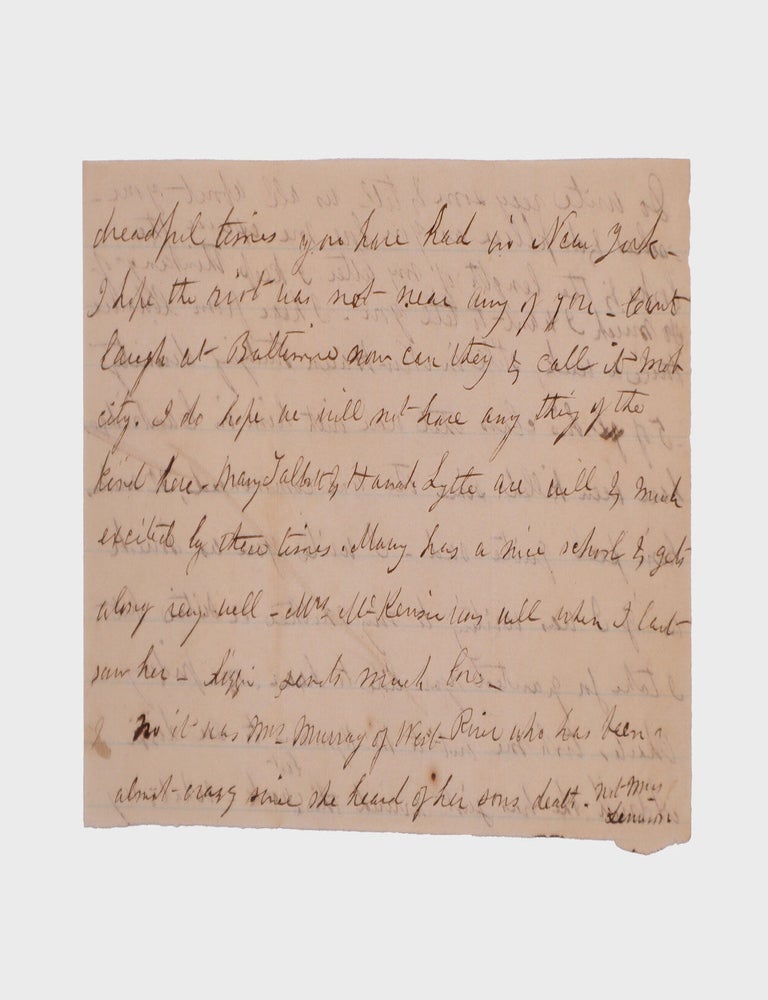 dreadful times you have had in New York -
I hope the riot was not near any of you - Cant
laugh at Baltimore now can they & call it Mob
city. I do hope we will not have any thing of the
kind here - Mary Talbott & Hannah Lytle are well & much
excited by these times. Mary has a nice school & gets
along very well - Mrs McKensie was well when I last
saw her - Lizzie sends much love -
no it was Mrs Murray of West River who has been
almost crazy since she heard of her sons death - not Mrs